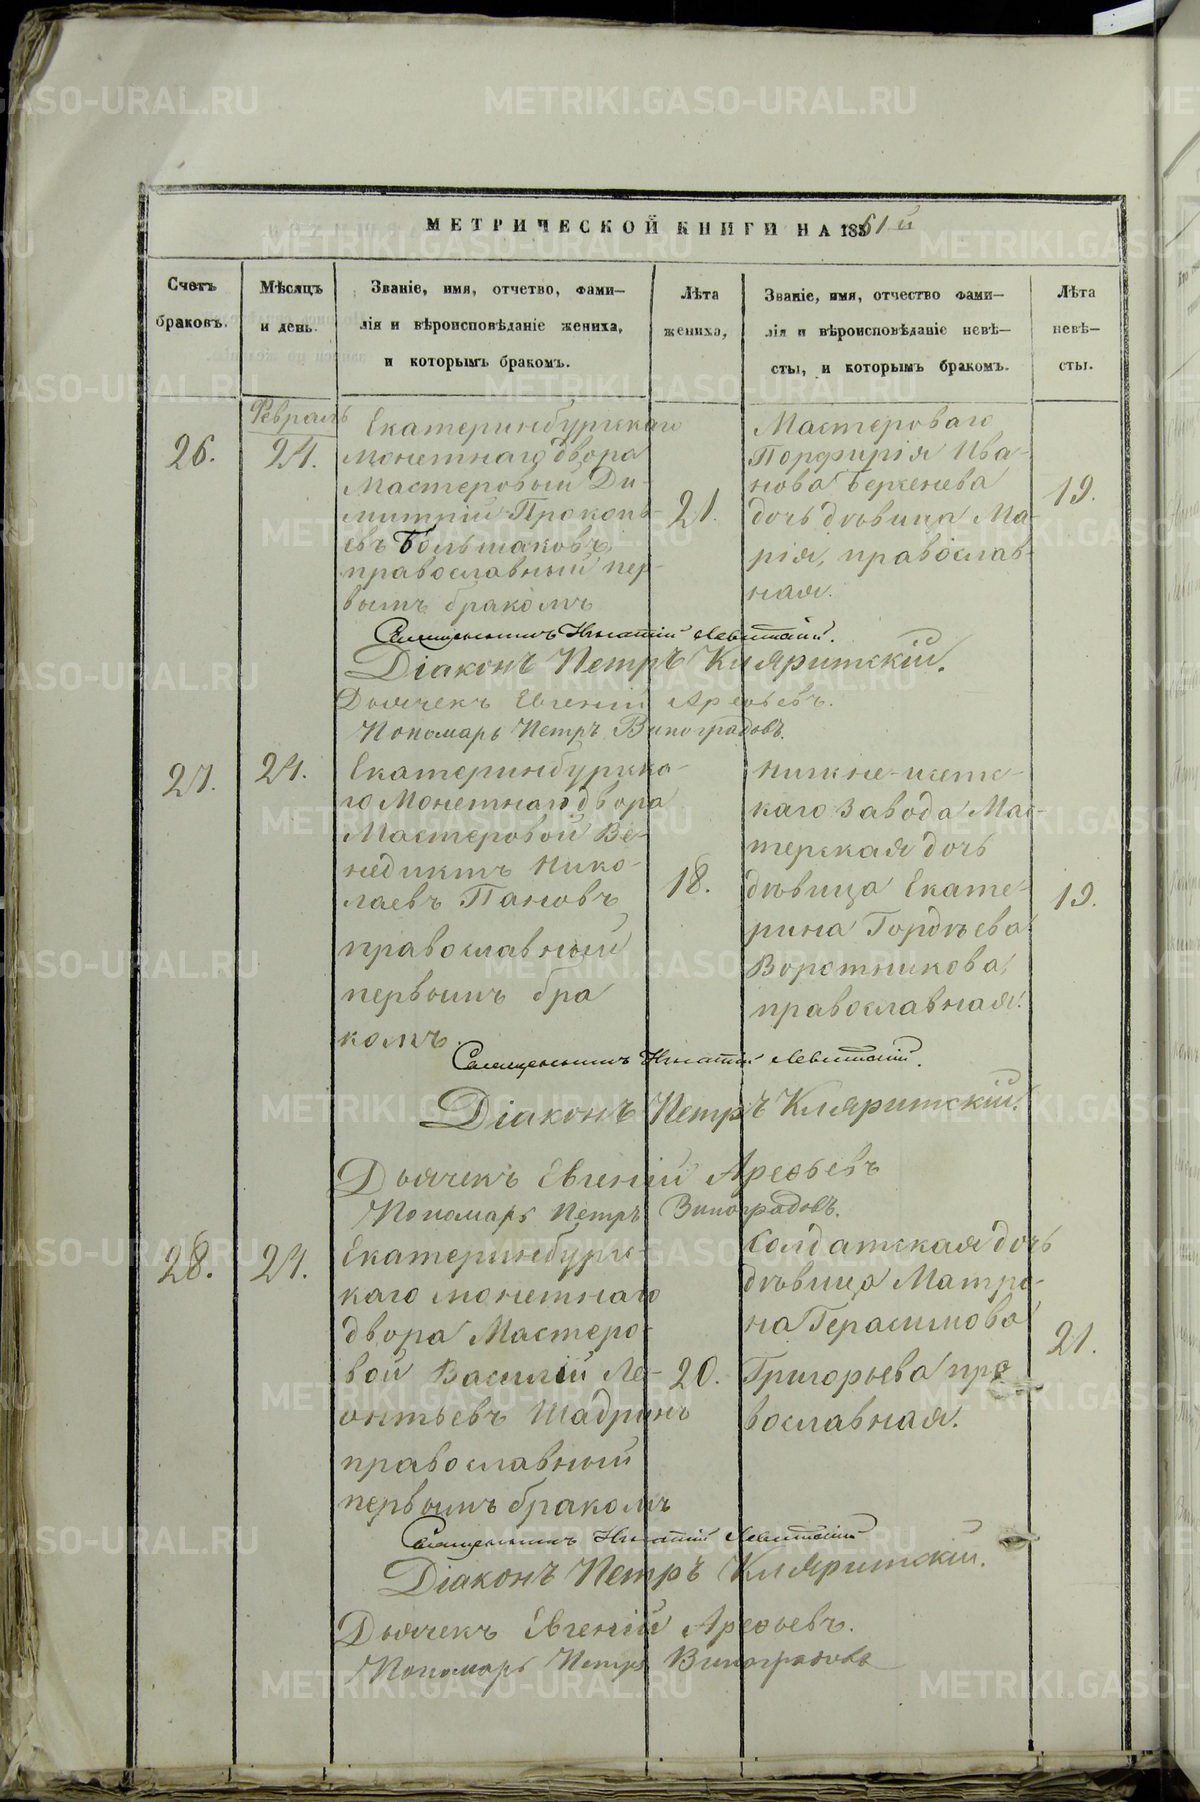 МЕТРИЧЕСКОЙ КНИГИ НА 1861й
Счетъ браковъ.
Мѣсяцъ и день.
Званіе, имя, отчетво, фами—
лія и вѣроисповѣданіе жениха,
и которымъ бракомъ.
Лѣта жениха,
Званіе, имя, отчество фами—
лія и вѣроисповѣданіе невѣ—
сты, и которымъ бракомъ.
Лѣта невѣ—
сты.
Февраль
26.
24.
Екатеринбургскаго
монетнаго двора
Мастеровый Ди-
митрій Прокопь-
евъ Большаковъ,
православный пер-
вымъ бракомъ
21.
Мастероваго
Порфирія Ива-
нова Беркенева
дочь дѣвица Ма-
рія, православ-
ная.
19.
Священникъ Игнатій Левитскій.
Діаконъ Петръ Кляритскій.
Дьячекъ Евгеній Арефьевъ.
Пономарь Петръ Виноградовъ.
27.
24.
Екатеринбургска-
го Монетнаго двора
Мастеровой Ве-
недиктъ Нико-
лаевъ Пановъ
православный
первымъ бра
комъ.
18.
Нижне-исетс-
каго завода Мас-
терская дочь
дѣвица Екате-
рина Гордѣева
Воротникова,
православная.
19.
Священникъ Игнатій Левитскій.
Діаконъ Петръ Кляритскій.
Дьячекъ Евгеній Арефьевъ
Пономарь Петръ Виноградовъ.
28.
24.
Екатеринбургс-
каго монетнаго
двора Мастеро-
вой Василій Ле-
онтьевъ Шадринъ
православный
первымъ бракомъ
20.
Солдатская дочь
дѣвица Матре-
на Герасимова
Григорьева пра
вославная.
21.
Священникъ Игнатій Левитскій
Діаконъ Петръ Кляритскій.
Дьячекъ Евгеній Арефьевъ.
Пономарь Петръ Виноградовъ
METRIKI.GASO-URAL.RU